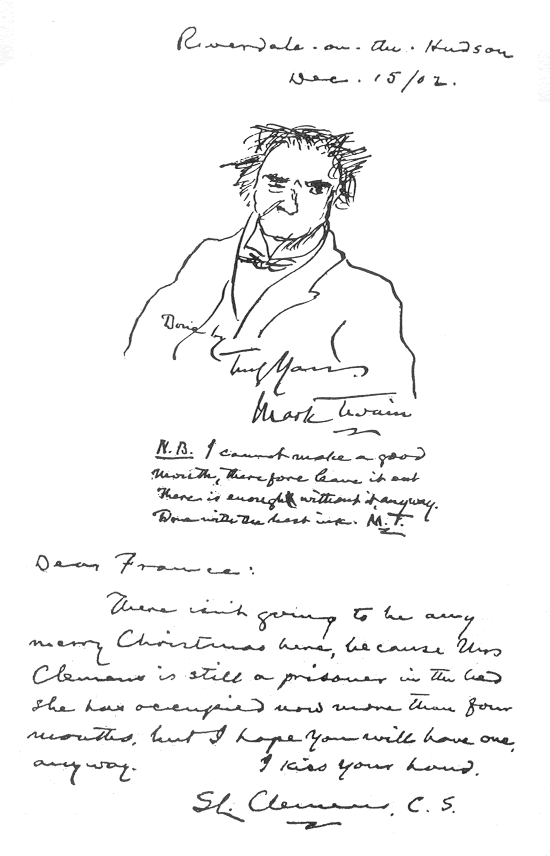 Riverdale-on-the-Hudson
Dec. 15/02.
Done by
Truly Yours
Mark Twain
N.B. I cannot make a good
mouth, therefore leave it out
There is enough without it, anyway.
Done with the best ink. M.T.
Dear Frances:
There isn't going to be any
merry Christmas here, because Mrs
Clemens is still a prisoner in the bed
she has occupied now more than four
months, but I hope you will have one,
anyway. I kiss your hand.
SL. Clemens, C.S.